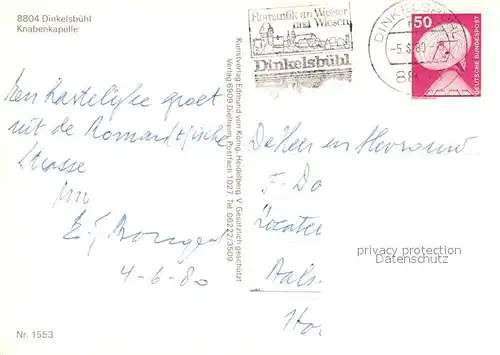 8804 Dinkelsbühl
Knabenkapelle
Romantik an Wasser
und Wiesen
Dinkelsbühl
DINKELSBÜHL
-5.6.80-
88
50
DEUTSCHE BUNDESPOST
Een hartelijke groet
uit de Romantische
Strasse
4-6-80
Kunstverlag Edmund von König, Heidelberg ∀ Gesetzlich geschützt
Verlag 6909 Dielheim, Postfach 1027, Tel. 06222/3509
De Heer en Mevrouw
F. Do
Aals
Ho
privacy protection
Datenschutz
Nr. 1553